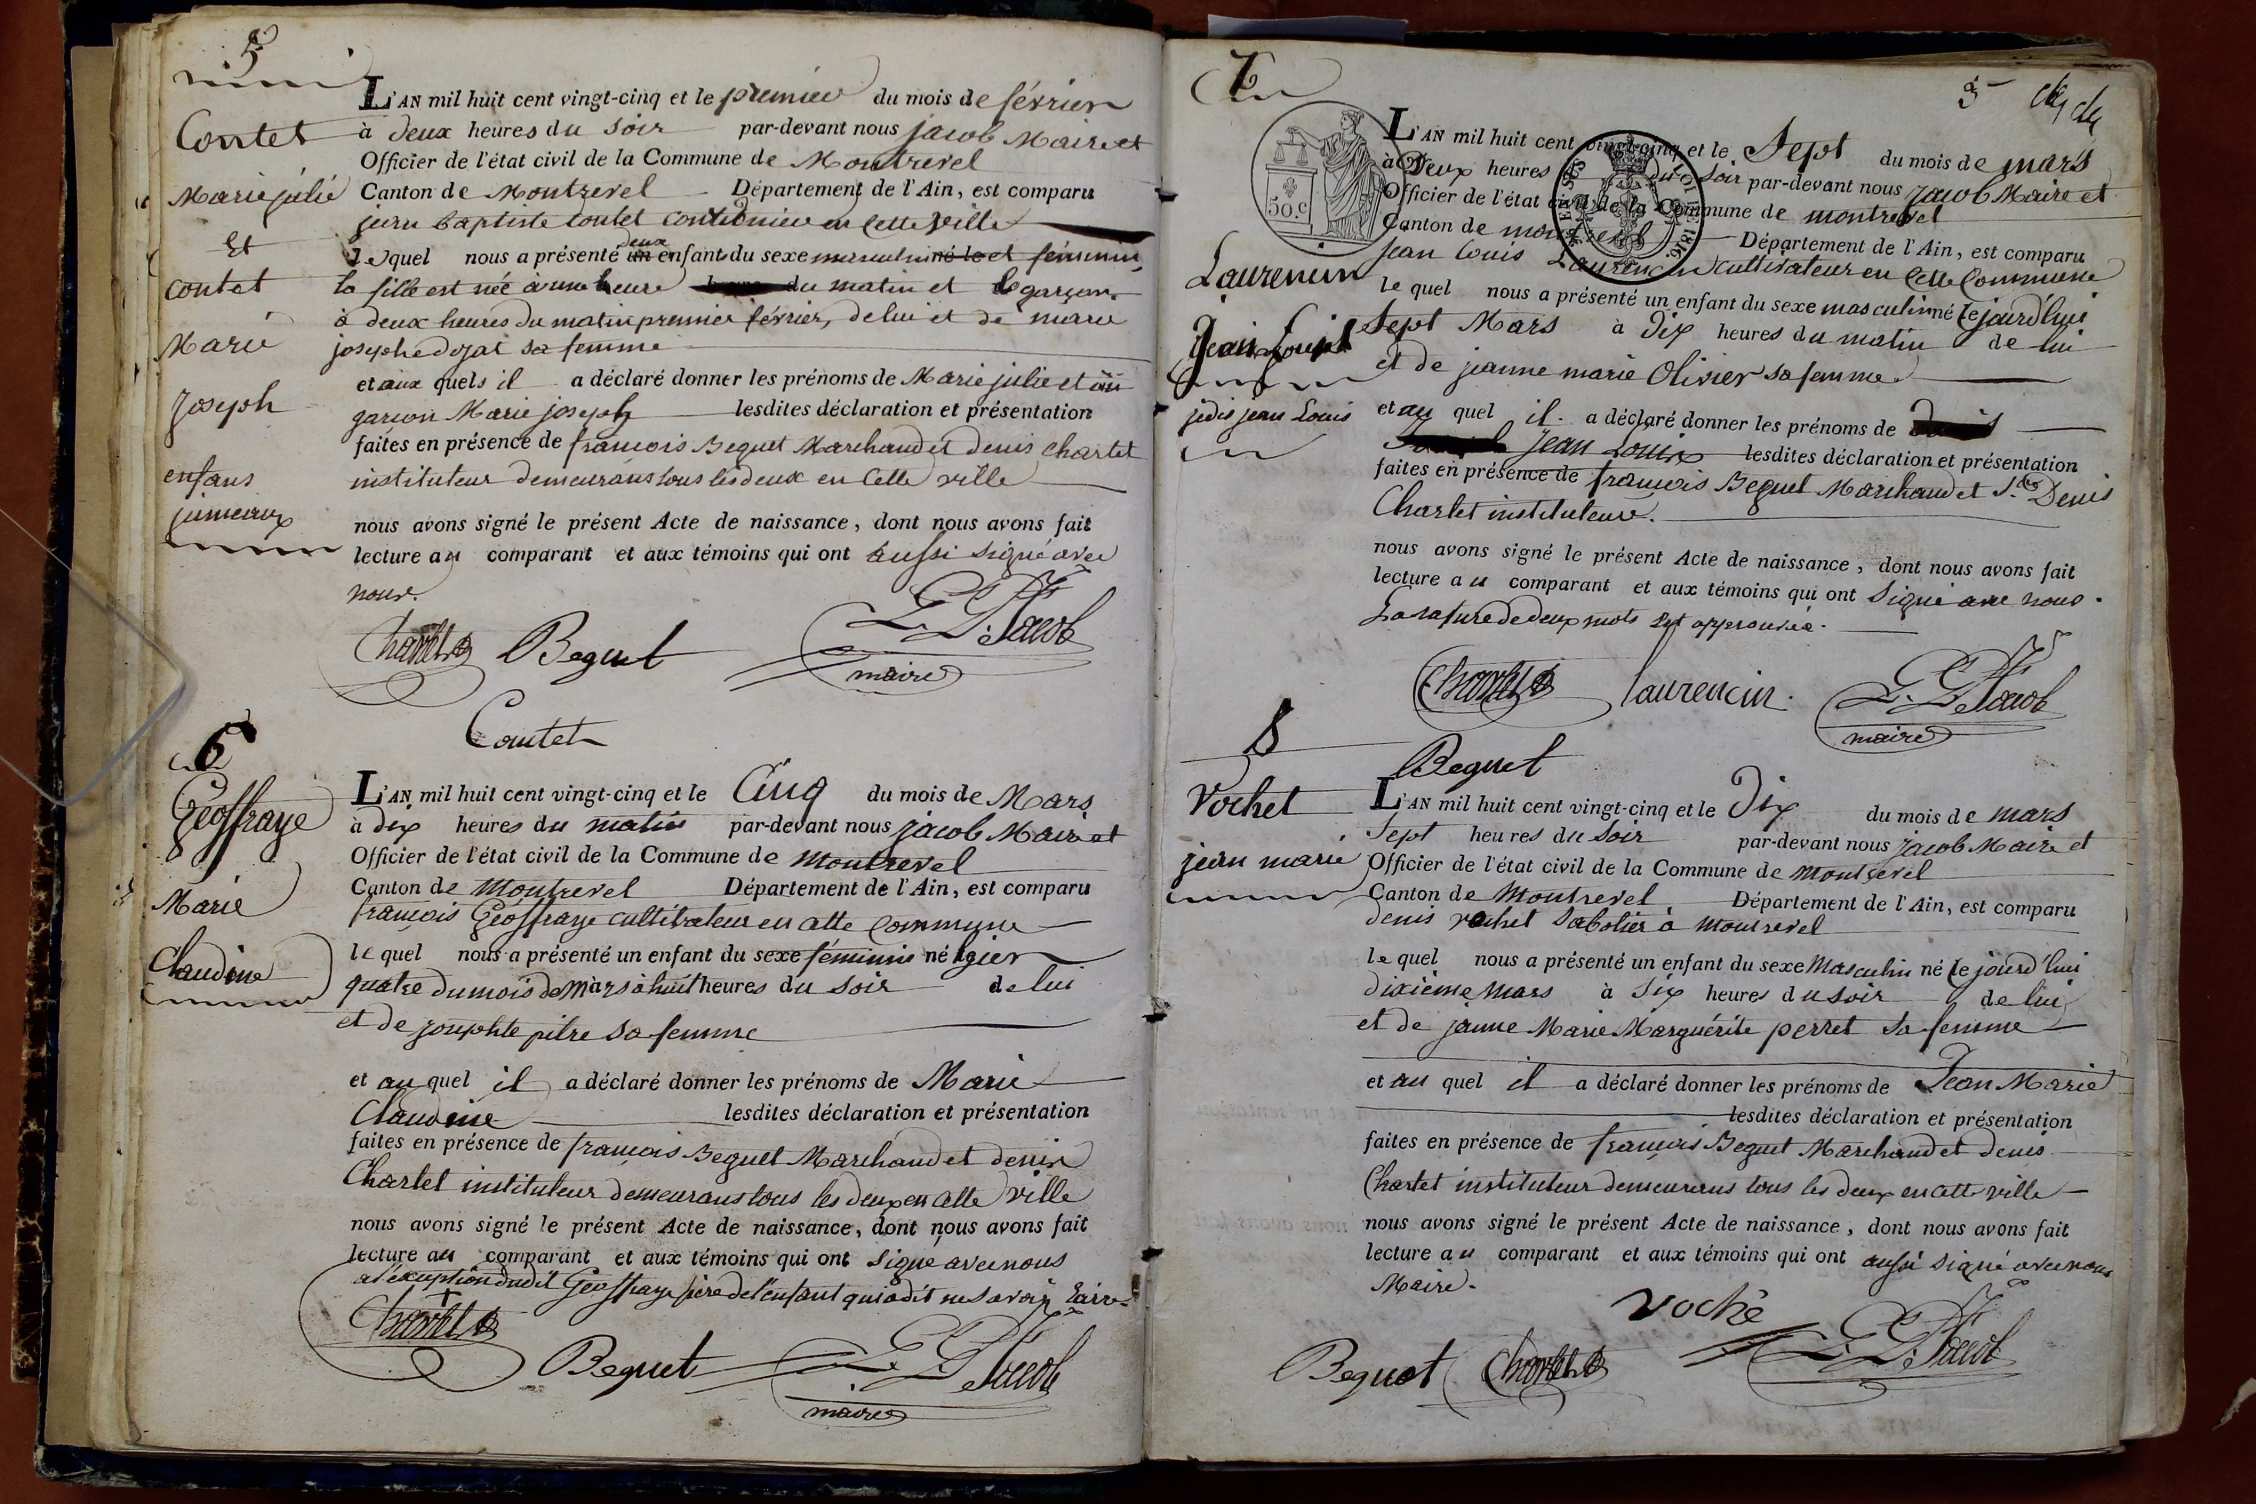 5
L'AN mil huit cent vingt-cinq et le premier du mois de février
à deux heures du soir par-devant nous jacob Maire et
Officier de l'état civil de la Commune de Montrevel
Canton de Montrevel Département de l'Ain, est comparu
jean baptiste contet en cette ville
lequel nous a présenté deux enfants du sexe masculin et féminin,
la fille est née à une heure du matin et le garçon
à deux heures du matin premier février, de lui et de marie
josephe dozat sa femme
et aux quels il a déclaré donner les prénoms de Marie julie et au
garçon Marie joseph lesdites déclaration et présentation
faites en présence de francois Beguet Marchand et denis Chartet
instituteur demeurans tous les deux en cette ville
nous avons signé le présent Acte de naissance, dont nous avons fait
lecture au comparant et aux témoins qui ont aussi signé avec
nous.
Contet
Marie julie
Et
contet
Marie
Joseph
enfans
jumeaux
Chartet Beguet Jacob
maire
Contet
6
Geoffraye
Marie
Claudine
L'AN mil huit cent vingt-cinq et le Cinq du mois de Mars
à dix heures du matin par-devant nous jacob Maire et
Officier de l'état civil de la Commune de Montrevel
Canton de Montrevel Département de l'Ain, est comparu
françois Geoffraye cultivateur en cette Commune
le quel nous a présenté un enfant du sexe féminin né hier
quatre du mois de Mars à huit heures du soir de lui
et de pitre sa femme
et au quel il a déclaré donner les prénoms de Marie
Claudine lesdites déclaration et présentation
faites en présence de françois Beguet Marchand et denis
Chartet instituteur demeurans tous les deux en cette ville
nous avons signé le présent Acte de naissance, dont nous avons fait
lecture au comparant et aux témoins qui ont signé avec nous
a l'exception dudit Geoffraye père de l'enfant qui a dit ne savoir
Chartet
Beguet Jacob
maire
7
5
50.c
LOI DE 1816
L'AN mil huit cent vingt-cinq et le Sept du mois de mars
à Deux heures du soir par-devant nous jacob Maire et
Officier de l'état civil de la Commune de montrevel
Canton de montrevel Département de l'Ain, est comparu
jean Louis Laurencin cultivateur en cette Commune
le quel nous a présenté un enfant du sexe masculin né le jourd'hui
Sept Mars à Dix heures du matin de lui
et de jeanne marie Olivier sa femme.
et au quel il a déclaré donner les prénoms de
jean Louis lesdites déclaration et présentation
faites en présence de françois Beguet Marchand et Sr. Denis
Chartet instituteur.
nous avons signé le présent Acte de naissance, dont nous avons fait
lecture au comparant et aux témoins qui ont signé avec nous.
La rature de deux mots est approuvée.
Laurencin
jean Louis
Chartet laurencin. Jacob
maire
Beguet
8
Vochet
jean marie
L'AN mil huit cent vingt-cinq et le Dix du mois de mars
Sept heures du soir par-devant nous jacob Maire et
Officier de l'état civil de la Commune de Montrevel
Canton de Montrevel Département de l'Ain, est comparu
denis vochet Sabotier à Montrevel
le quel nous a présenté un enfant du sexe Masculin né le jourd'hui
dixième Mars à Six heures du soir de lui
et de janne Marie Marguérite perret sa femme
et au quel il a déclaré donner les prénoms de Jean Marie
lesdites déclaration et présentation
faites en présence de françois Beguet Marchand et denis
Chartet instituteur demeurans tous les deux en cette ville
nous avons signé le présent Acte de naissance, dont nous avons fait
lecture au comparant et aux témoins qui ont aussi signé avec nous
Maire.
voché
Beguet Chartet Jacob